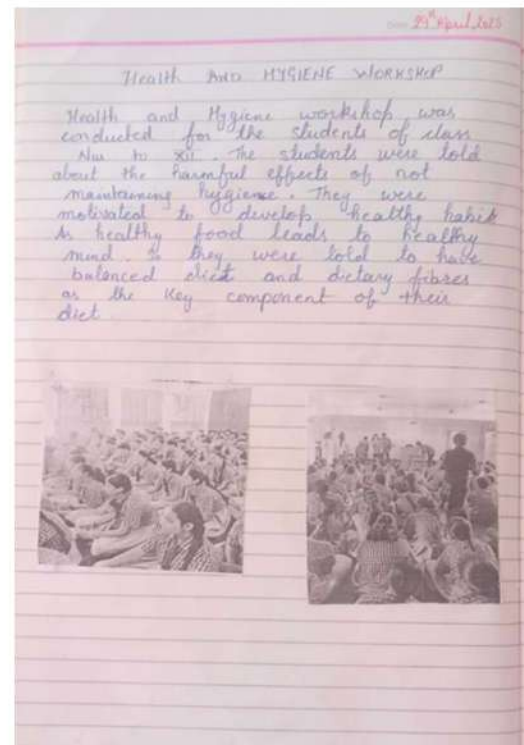 Date 29th April, 2025
Health AND HYGIENE WORKSHOP
Health and Hygiene workshop was
conducted for the students of class
to XII. The students were told
about the harmful effects of not
maintaining hygiene. They were
motivated to develop healthy habits
As healthy food leads to healthy
mind. So they were told to have
balanced diet and dietary fibres
as the key component of their
diet.